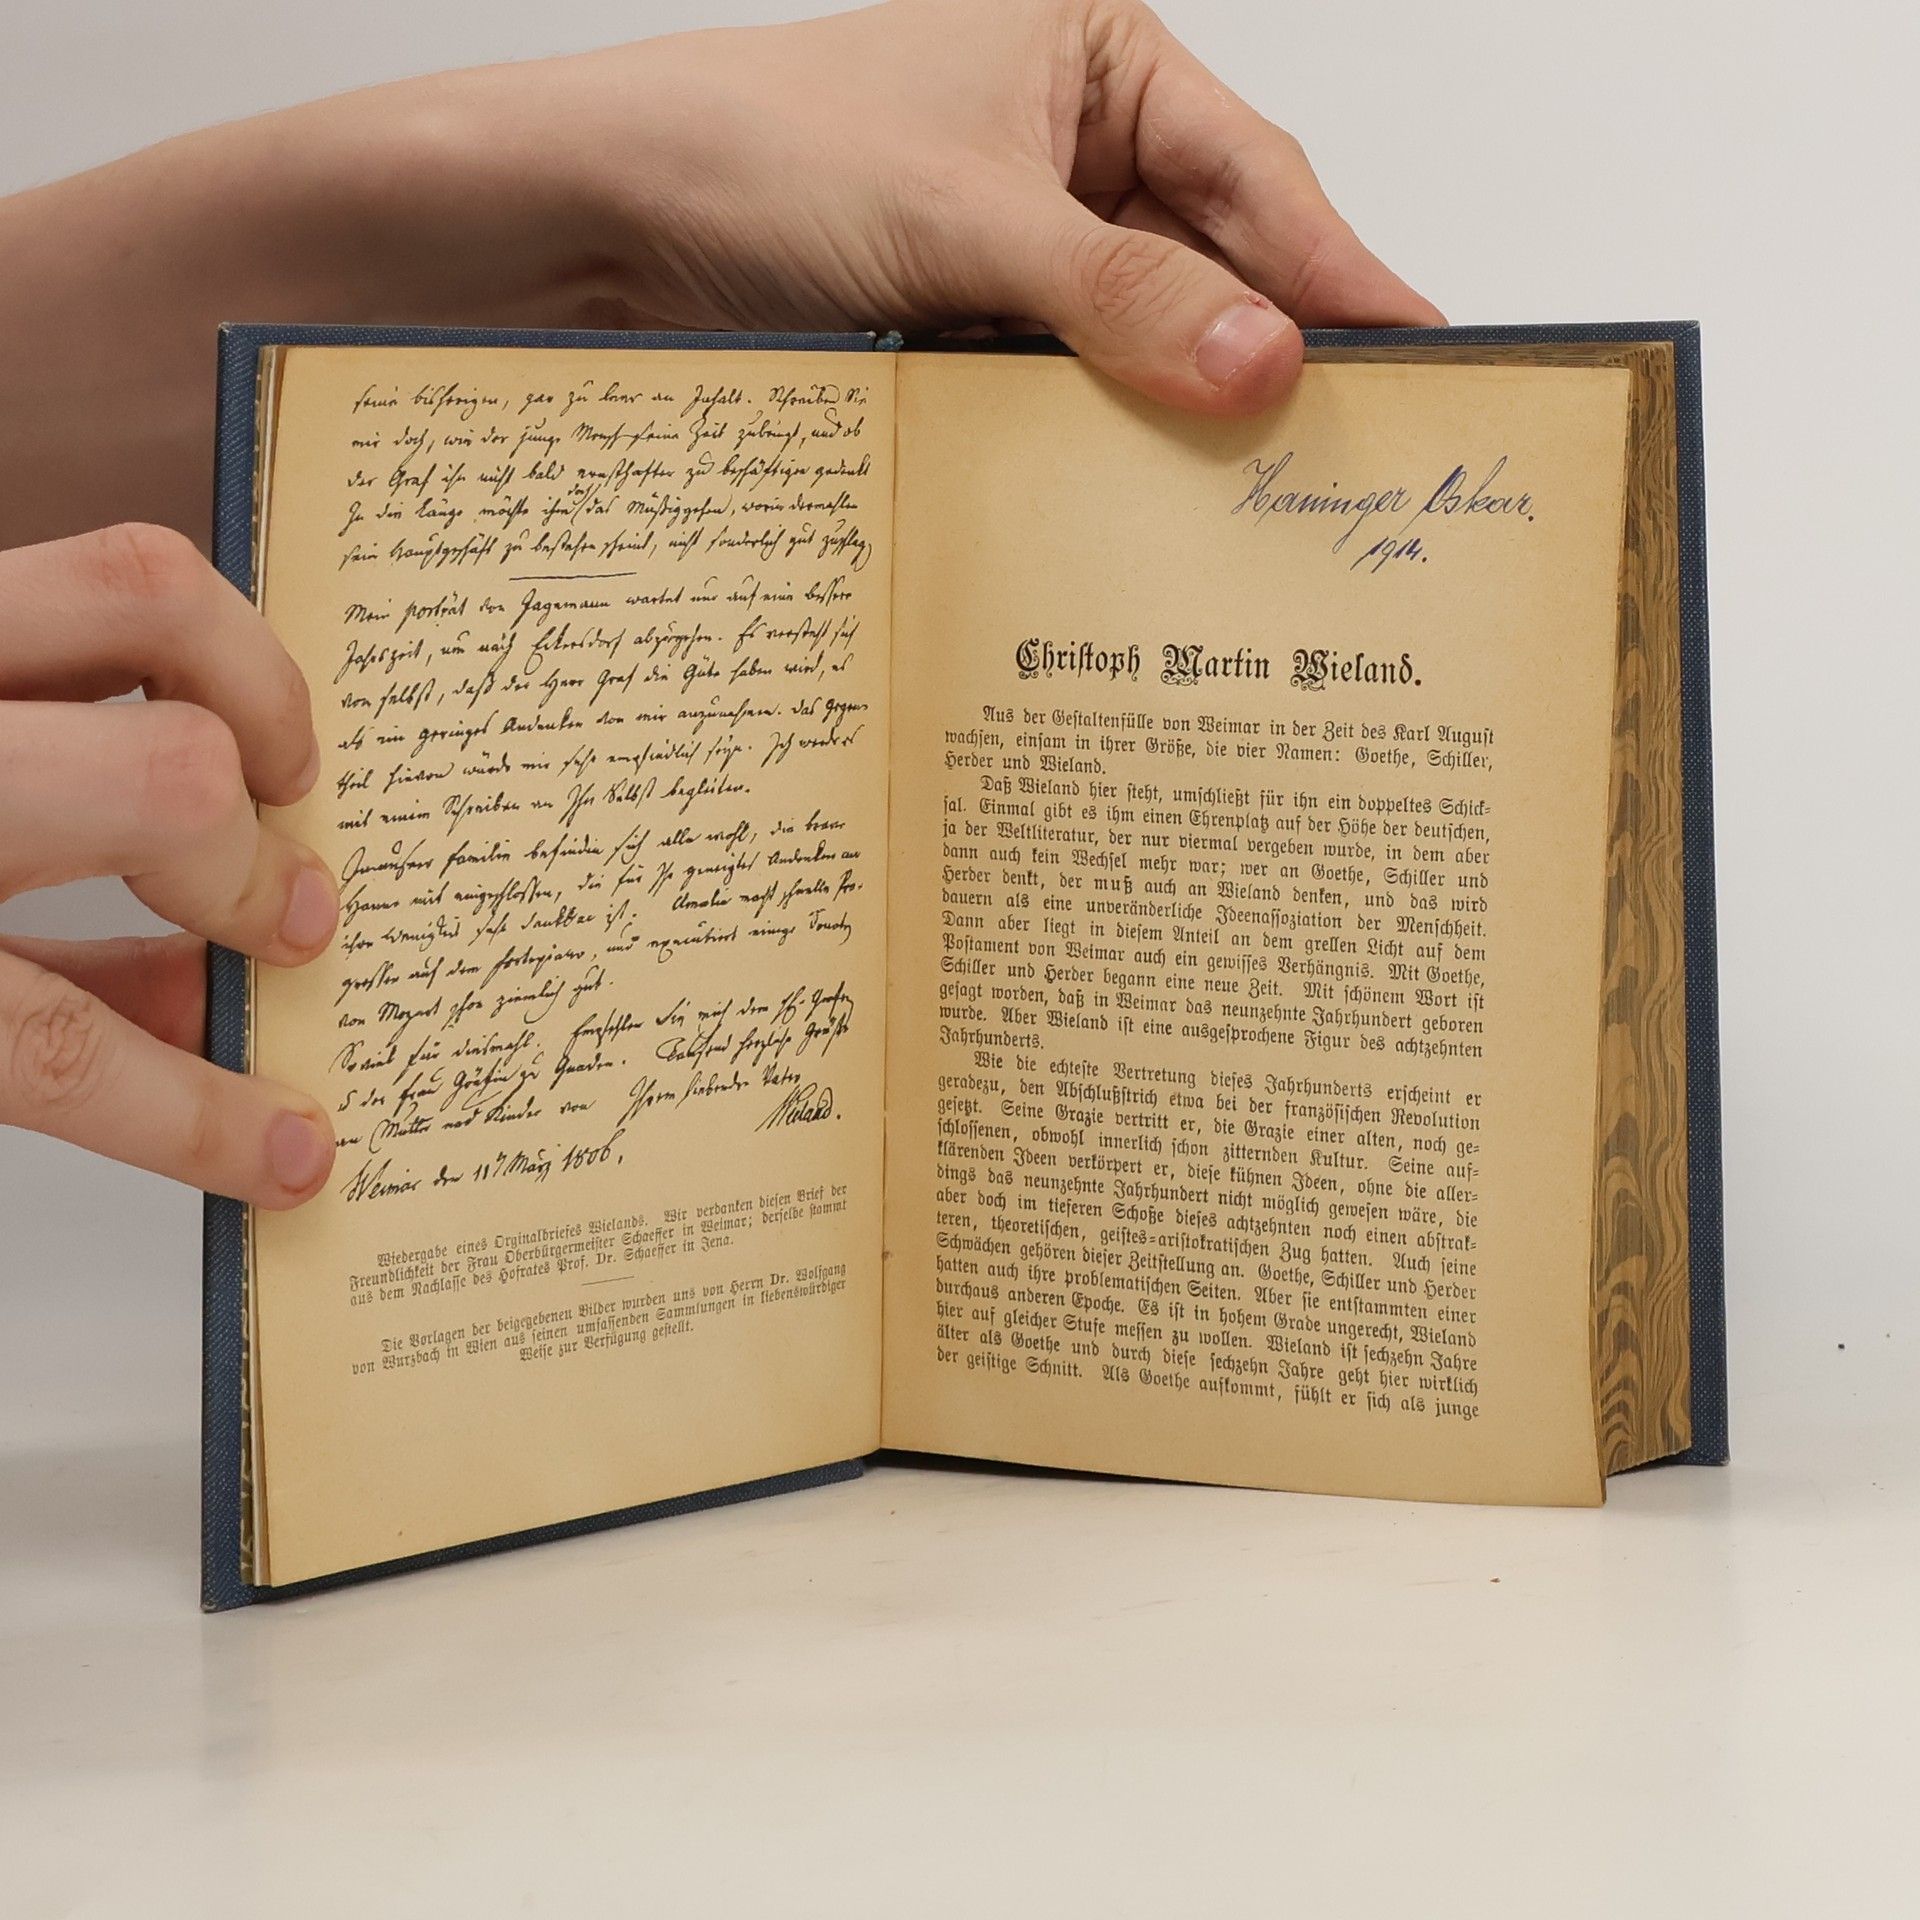 seine bisherigen, gar zu leer an Inhalt. Schreiben Sie
mir doch, wie der junge Mensch seine Zeit zubringt, und ob
der Graf ihn nicht bald ernsthafter zu beschäftigen gedenkt
In die Länge möchte ihm doch das Müßiggehen, worin dermahlen
sein Hauptgeschäft zu bestehen scheint, nicht sonderlich gut zuschlagen
Mein Porträt von Jagemann wartet nur auf eine bessere
Jahrszeit, um nach Eckersdorf abzugehen. Es versteht sich
von selbst, daß der Herr Graf die Güte haben wird, es
als ein geringes Andenken von mir anzunehmen. Das Gegen-
theil hievon würde mir sehr empfindlich seyn. Ich werde es
mit einem Schreiben an Ihn Selbst begleiten.
Familie befinden sich alle wohl, die brave
Hanne mit eingeschlossen, die für Ihr geneigtes Andenken an
ihre Wenigkeit sehr dankbar ist. Amalie macht schnelle Pro-
gressen auf dem Fortepiano, und executiert einige Sonaten
von Mozart schon ziemlich gut.
Soviel für diesmahl. Empfehlen Sie mich dem H. Grafen
der Frau Gräfin zu Gnaden. Tausend herzliche Grüße
an Mutter und Kinder von Ihrem liebenden Vater
Wieland.
Weimar den 11ten März 1806.
Wiedergabe eines Orginalbriefes Wielands. Wir verdanken diesen Brief der
Freundlichkeit der Frau Oberbürgermeister Schaeffer in Weimar; derselbe stammt
aus dem Nachlasse des Hofrates Prof. Dr. Schaeffer in Jena.
Die Vorlagen der beigegebenen Bilder wurden uns von Herrn Dr. Wolfgang
von Wurzbach in Wien aus seinen umfassenden Sammlungen in liebenswürdiger
Weise zur Verfügung gestellt.
Haninger Oskar.
1914.
Christoph Martin Wieland.
Aus der Gestaltenfülle von Weimar in der Zeit des Karl August
wachsen, einsam in ihrer Größe, die vier Namen: Goethe, Schiller,
Herder und Wieland.
Daß Wieland hier steht, umschließt für ihn ein doppeltes Schick-
sal. Einmal gibt es ihm einen Ehrenplatz auf der Höhe der deutschen,
ja der Weltliteratur, der nur viermal vergeben wurde, in dem aber
dann auch kein Wechsel mehr war; wer an Goethe, Schiller und
Herder denkt, der muß auch an Wieland denken, und das wird
dauern als eine unveränderliche Ideenassoziation der Menschheit.
Dann aber liegt in diesem Anteil an dem grellen Licht auf dem
Postament von Weimar auch ein gewisses Verhängnis. Mit Goethe,
Schiller und Herder begann eine neue Zeit. Mit schönem Wort ist
gesagt worden, daß in Weimar das neunzehnte Jahrhundert geboren
wurde. Aber Wieland ist eine ausgesprochene Figur des achtzehnten
Jahrhunderts.
Wie die echteste Vertretung dieses Jahrhunderts erscheint er
geradezu, den Abschlußstrich etwa bei der französischen Revolution
gesetzt. Seine Grazie vertritt er, die Grazie einer alten, noch ge-
schlossenen, obwohl innerlich schon zitternden Kultur. Seine auf-
klärenden Ideen verkörpert er, diese kühnen Ideen, ohne die aller-
dings das neunzehnte Jahrhundert nicht möglich gewesen wäre, die
aber doch im tieferen Schoße dieses achtzehnten noch einen abstrak-
teren, theoretischen, geistes-aristokratischen Zug hatten. Auch seine
Schwächen gehören dieser Zeitstellung an. Goethe, Schiller und Herder
hatten auch ihre problematischen Seiten. Aber sie entstammten einer
durchaus anderen Epoche. Es ist in hohem Grade ungerecht, Wieland
hier auf gleicher Stufe messen zu wollen. Wieland ist sechzehn Jahre
älter als Goethe und durch diese sechzehn Jahre geht hier wirklich
der geistige Schnitt. Als Goethe aufkommt, fühlt er sich als junge